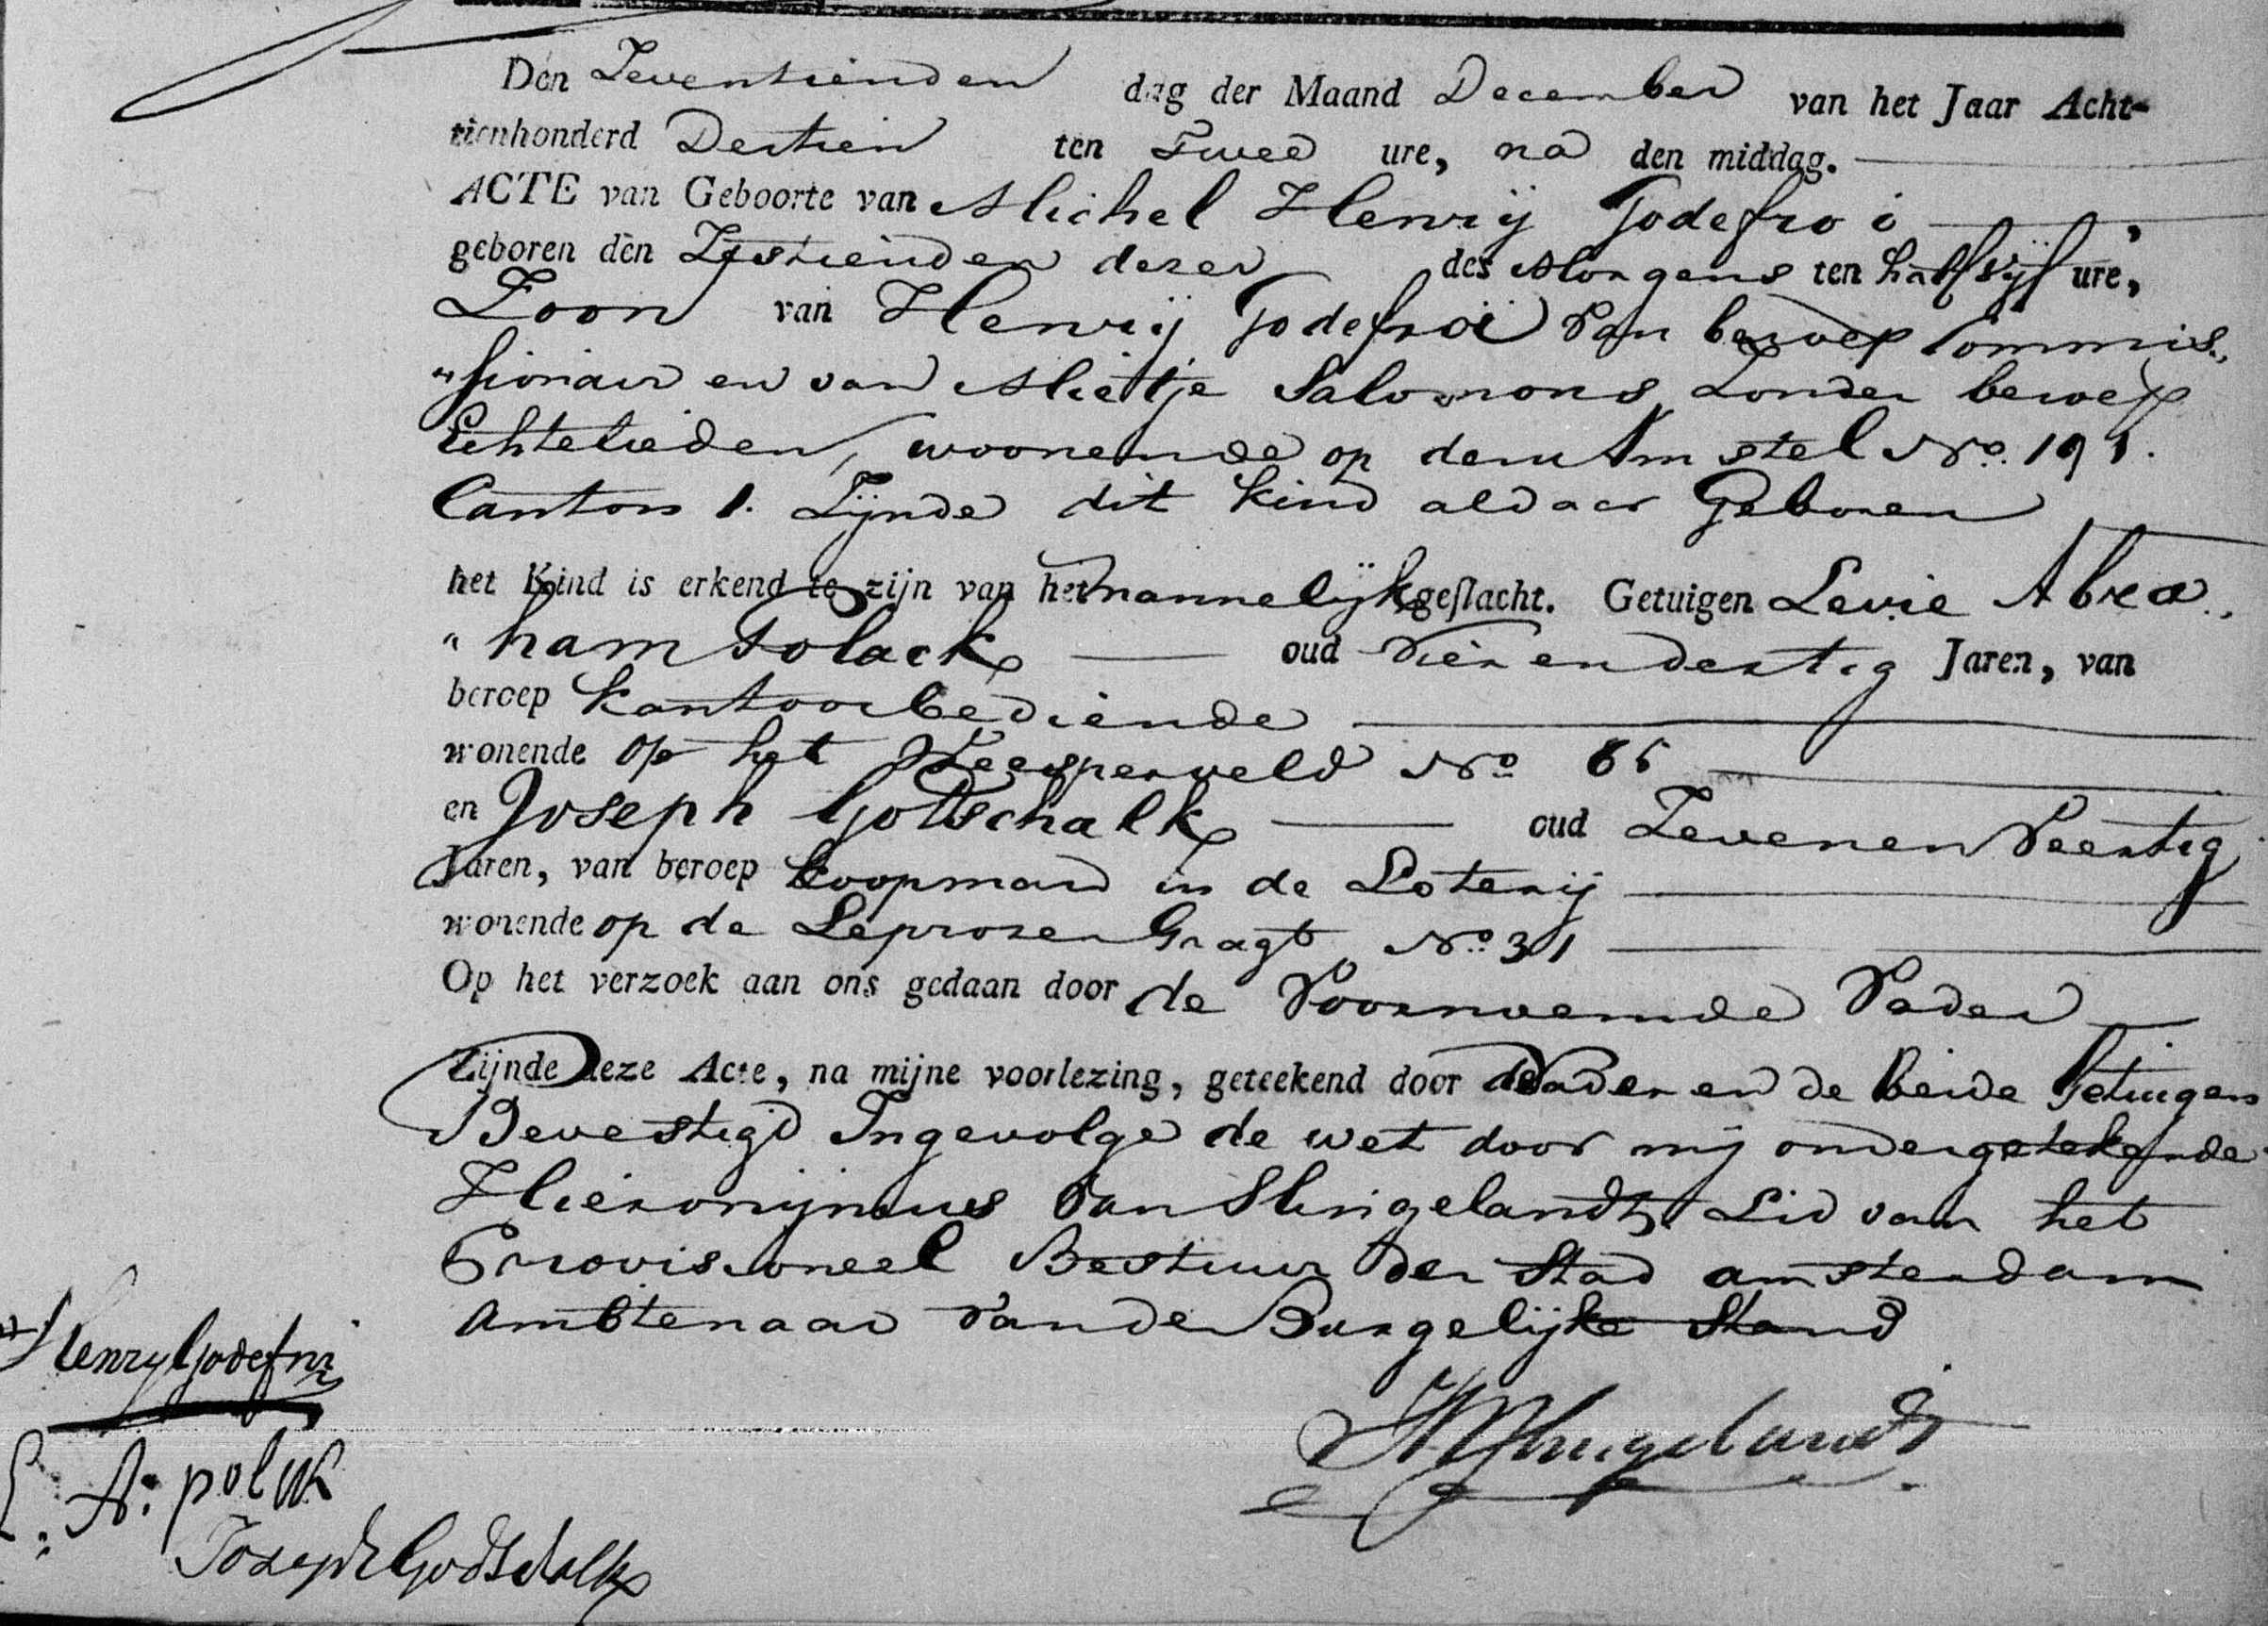 Den Zeventienden dag der Maand December van het Jaar Acht-
tienhonderd Dertien ten Twee ure, na den middag.
ACTE van Geboorte van Michel Henrij Godefroi,
geboren den Zestienden dezer des Morgens ten half vijf ure,
Zoon van Henrij Godefroi van beroep Commis„
„sionair en van Mietje Salomons, zonder beroep
Echtelieden, woonende op den Amstel No. 191.
Canton 1. Zijnde dit kind aldaar Geboren
het Kind is erkend te zijn van het mannelijk geslacht. Getuigen Levie Abra„
„ham Polack oud vier en dertig Jaren, van
beroep kantoorbediende
wonende op het Weesperveld No 86
en Joseph Godschalk oud Zeven en Veertig
Jaren, van beroep koopman in de Loterij
wonende op de Leprozen Gragt No. 31
Op het verzoek aan ons gedaan door de Voornoemde Vader
Zijnde deze Acte, na mijne voorlezing, geteekend door de Vader en de beide Getuigen
Bevestigd Ingevolge de wet door mij ondergetekende
Hieronijmus van Slingelandt, Lid van het
Provisioneel Bestuur der Stad amsterdam
Ambtenaar van de Burgelijke Stand
Henry Godefroi
L: A: polak
Joseph Godschalk
HVSlingelandt